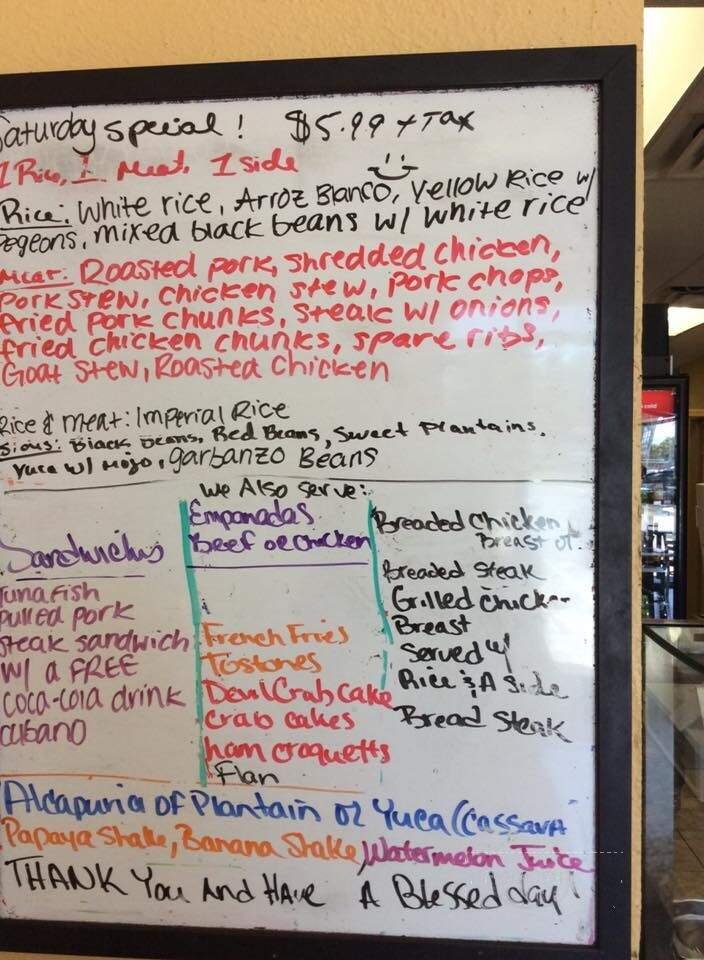 Saturday special! $5.99 + Tax
1 Rice, 1 Meat, 1 side
Rice: White rice, Arroz Blanco, Yellow Rice w/
Pegeons, mixed black beans w/ white rice
Meat: Roasted pork, shredded chicken,
pork stew, chicken stew, pork chops,
fried pork chunks, steak w/ onions,
fried chicken chunks, spare ribs,
Goat stew, Roasted Chicken
Rice & meat: Imperial Rice
Sides: Black Beans, Red Beans, Sweet Plantains,
Yuca w/ Mojo, garbanzo Beans
We Also serve:
Sandwiches
Tuna fish
Pulled pork
Steak sandwich
w/ a FREE
coca-cola drink
cubano
Empanadas
Beef or chicken
French Fries
Tostones
Devil Crab Cake
Crab cakes
ham croquetts
Flan
Breaded Chicken
Breast or
Breaded Steak
Grilled chicken
Breast
Served w/
Rice & A Side
Bread Steak
Alcapuria of Plantain or Yuca (Cassava
Papaya Shake, Banana Shake, Watermelon Juice
THANK You And Have A Blessed day!